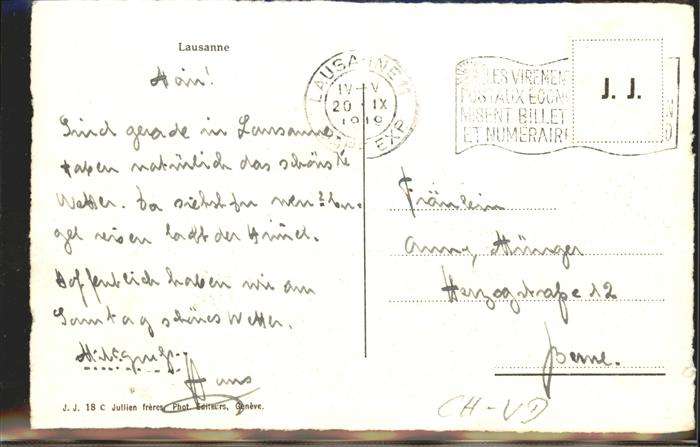 Lausanne
LAUSANNE 1
IV-V
20 IX
1919
EXP.
LES VIREMEN
POSTAUX ECON
MISENT BILLET
ET NUMERAIR
J. J.
Sind gerade in Lausanne.
Haben natürlich das schönste
Wetter. Da sieht Du wenn
gel reisen lacht der Himmel.
Hoffentlich haben wir am
Samstag schönes Wetter.
Hans
Fräulein
Anny Münger
Herzogstraße 12
Berne.
J. J. 18 C Jullien frères, Phot. Editeurs, Genève.
CH-VD